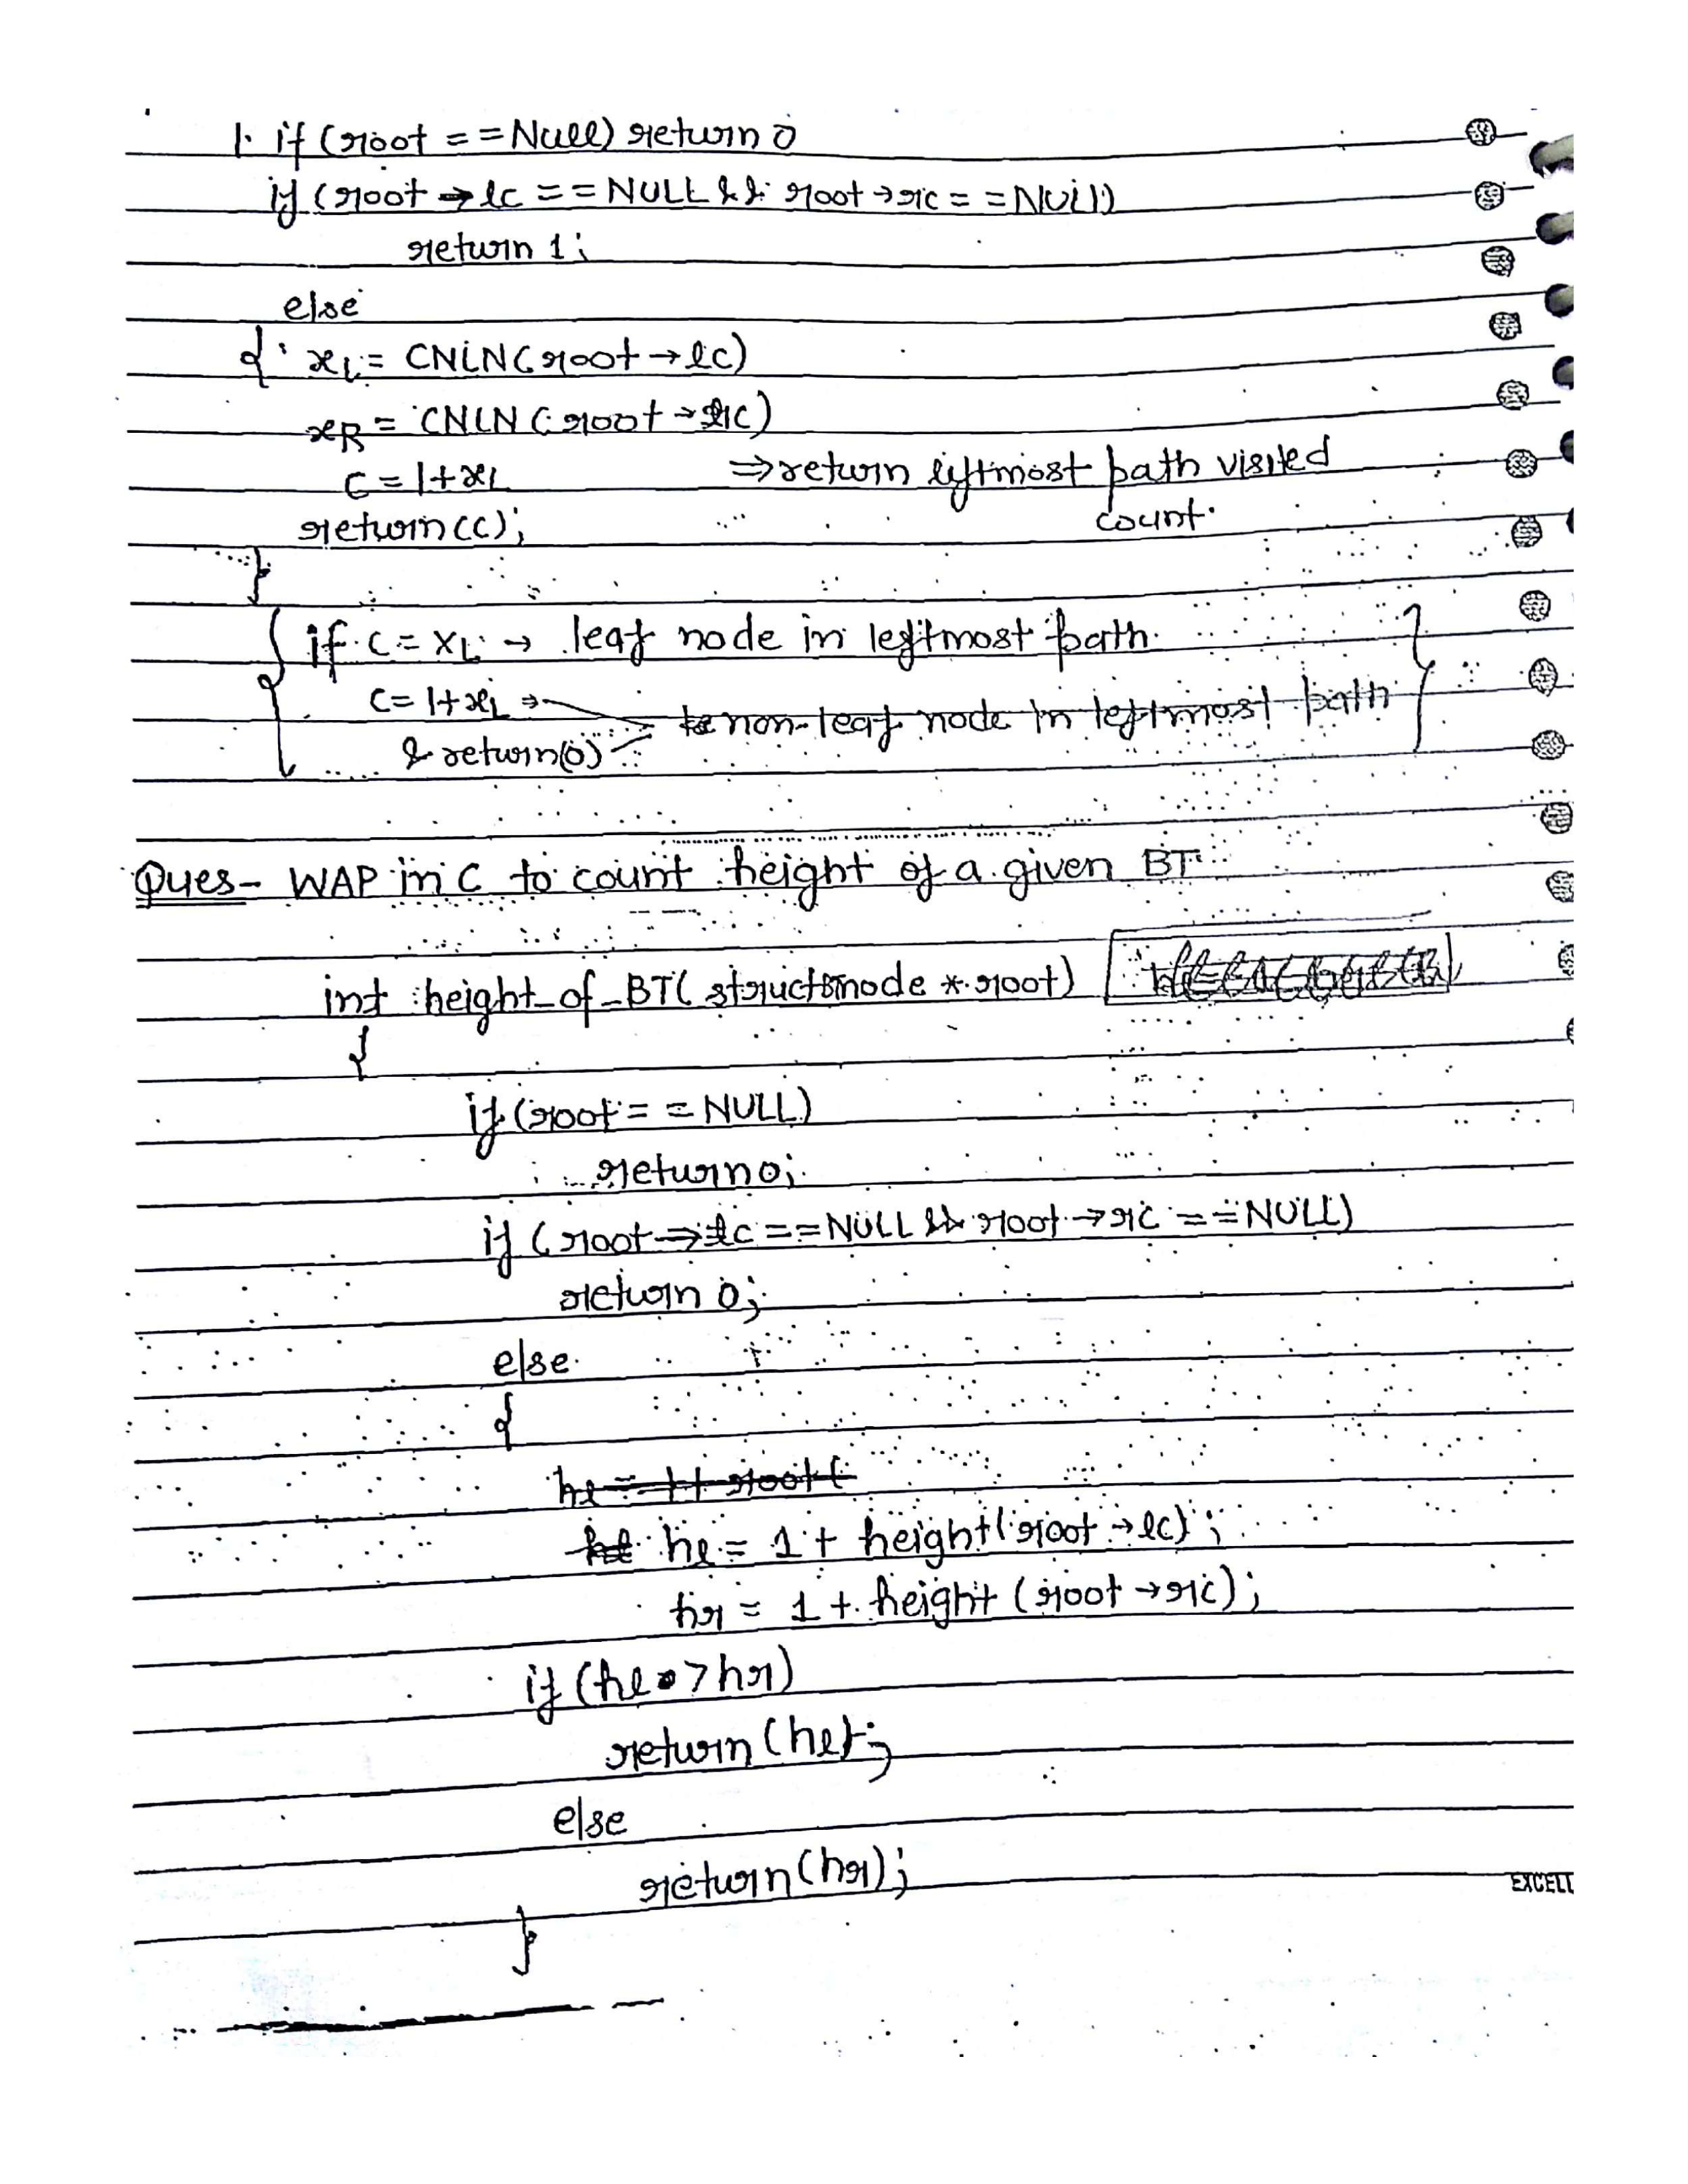 1. if (root == Null) return 0
if (root → lc == NULL && root → rc == Null)
return 1;
else
{ xL = CNLN(root → lc)
xR = CNLN(root → rc)
c = 1+xL ⇒ return liftmost path visited
return(c); count.
}
{ if c = xL → leaf node in leftmost path. }
c = 1+xL → non-leaf node in leftmost path
& return(0)
Ques- WAP in C to count height of a given BT
int height_of_BT( struct node * root)
{
if (root == NULL)
return 0;
if (root → lc == NULL && root → rc == NULL)
return 0;
else
{
hl = 1+ root (
hl = 1 + height(root → lc);
hr = 1 + height (root → rc);
if (hl > hr)
return (hl);
else
return (hr);
}
EXCELL